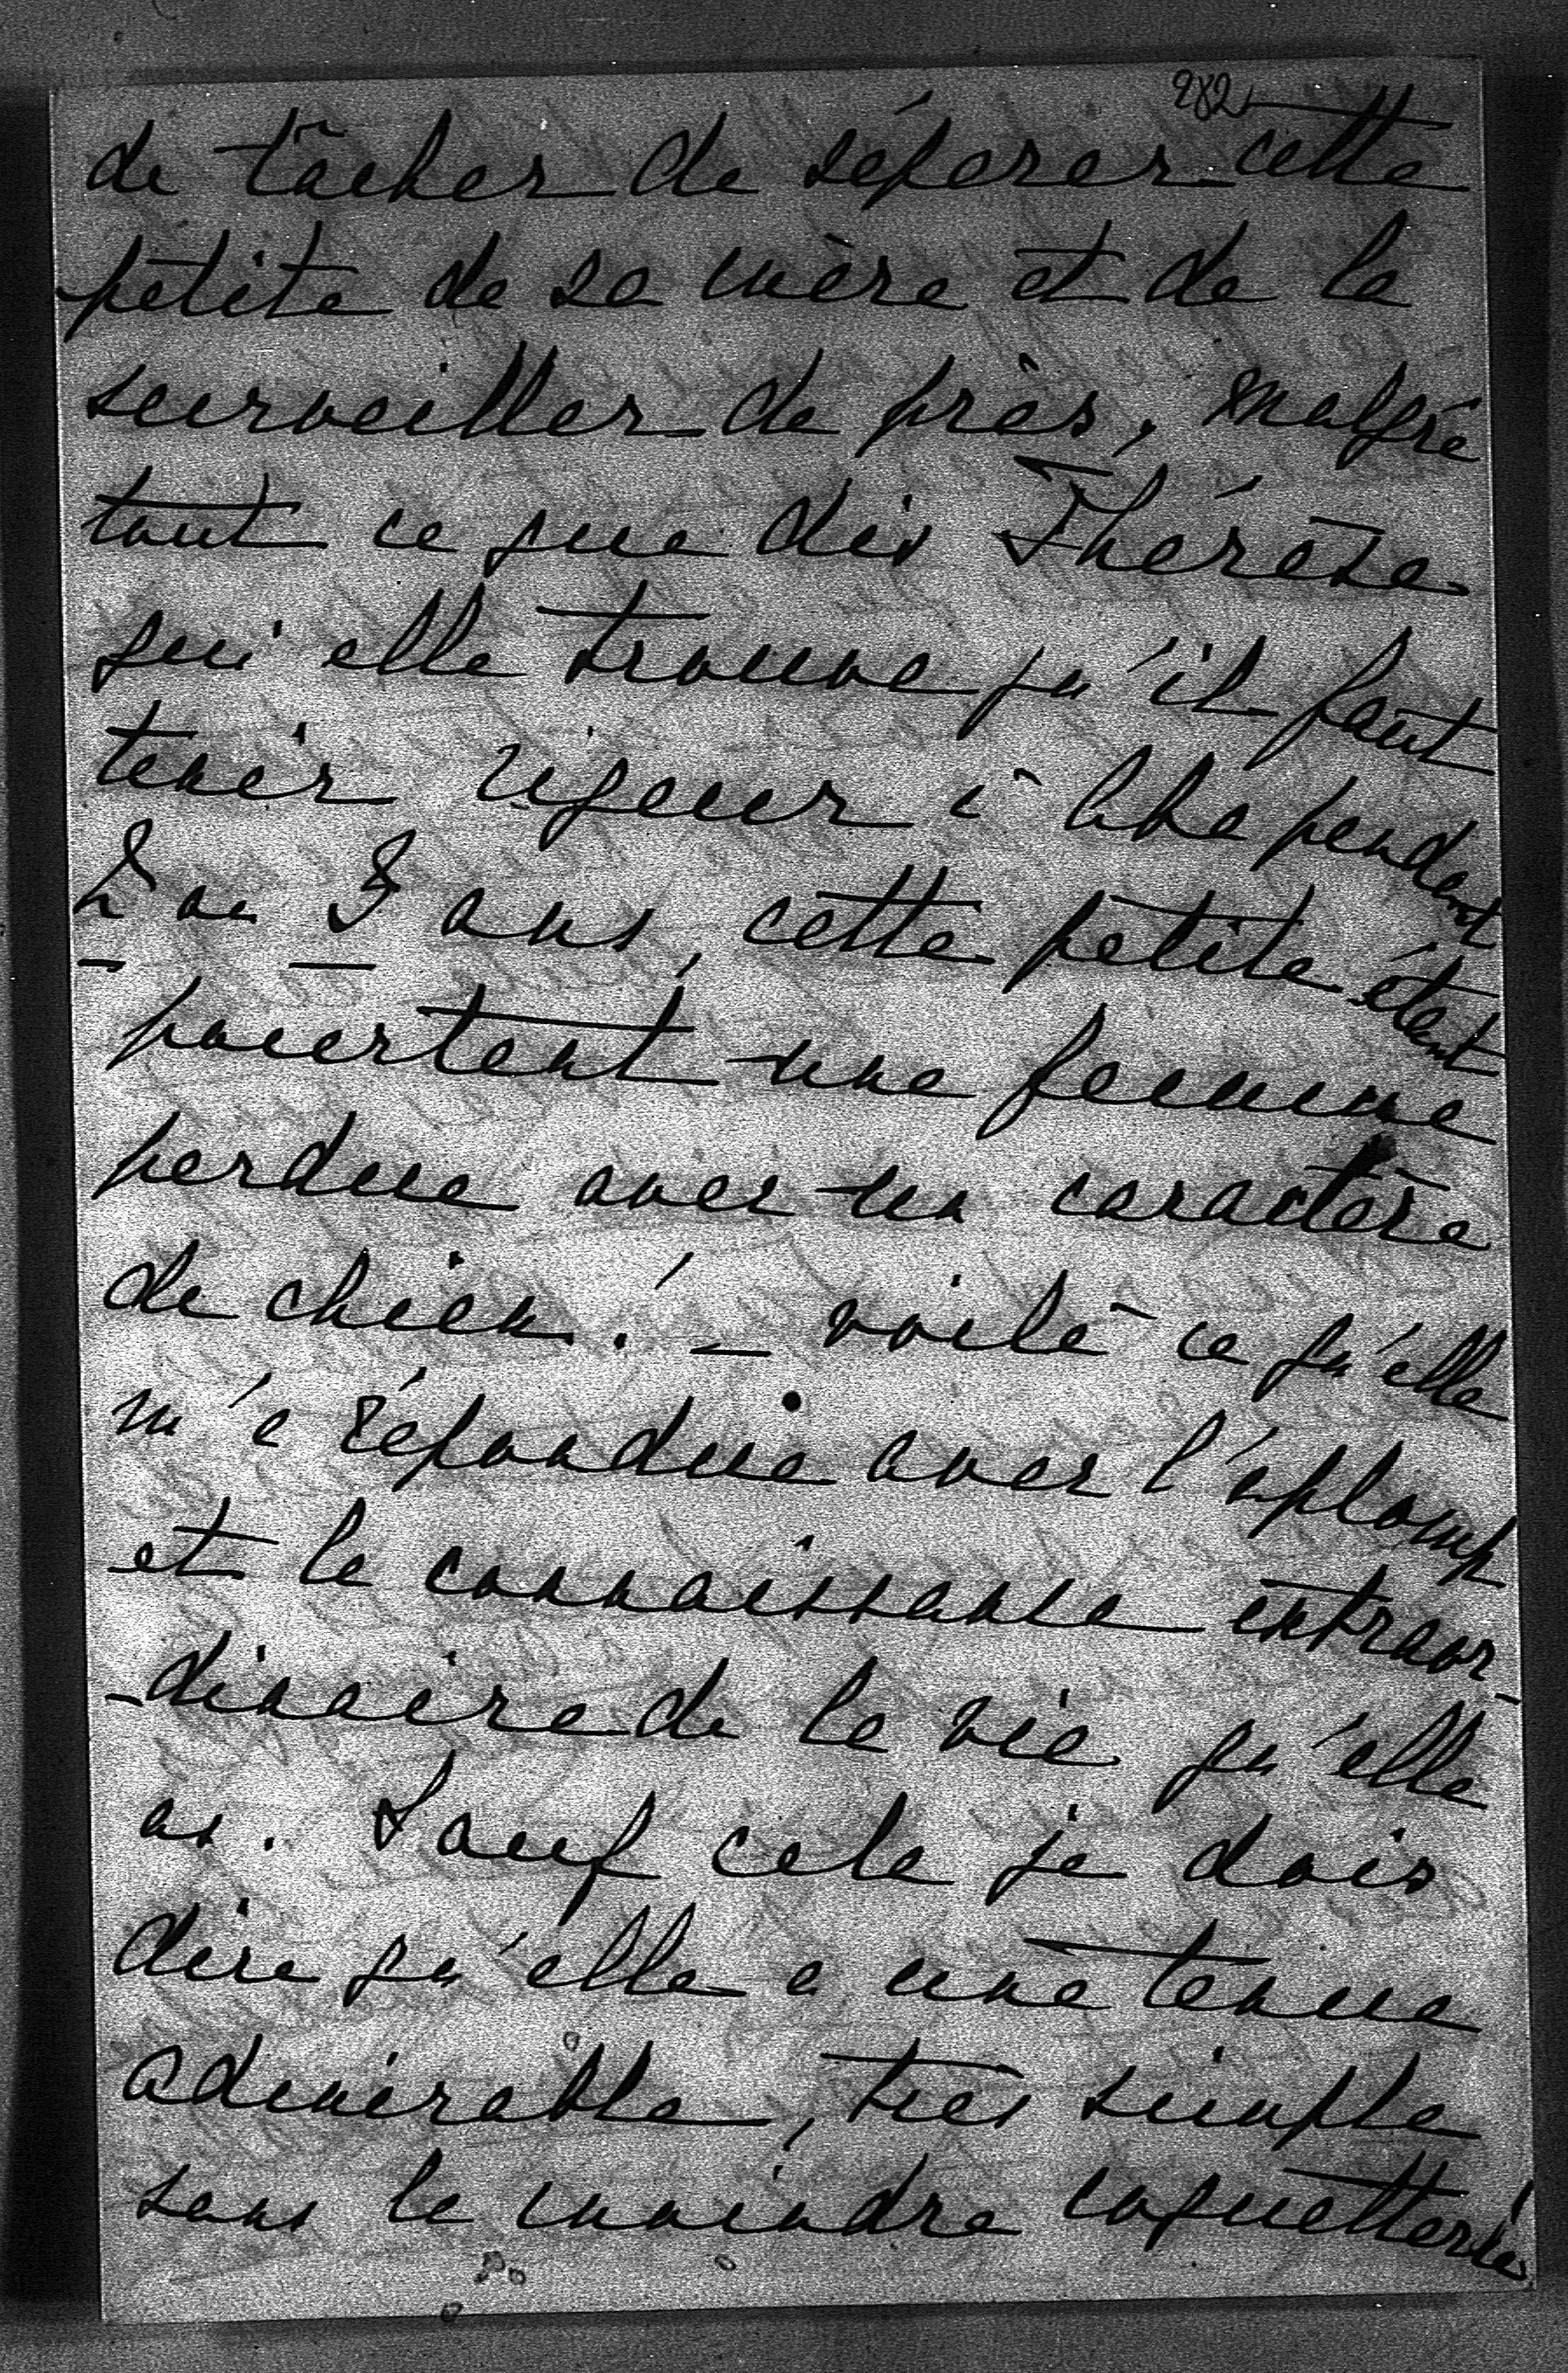 282
de tâcher de séparer cette
petite de sa mère et de la
surveiller de près, malgré
tout ce que dis Thérèse
qui elle trouve qu'il faut
tenir rigueur à pendant
2 ou 3 ans, cette petite étant
pourtant une femme
perdue avec un caractère
de chien! — voilà ce qu'elle
m'a répondue avec l'aplomp
et la connaissance extraor-
-dinaire de la vie qu'elle
as. Sauf cela je dois
dire qu'elle a une tenue
admirable, très simple
sans la moindre coquetterie